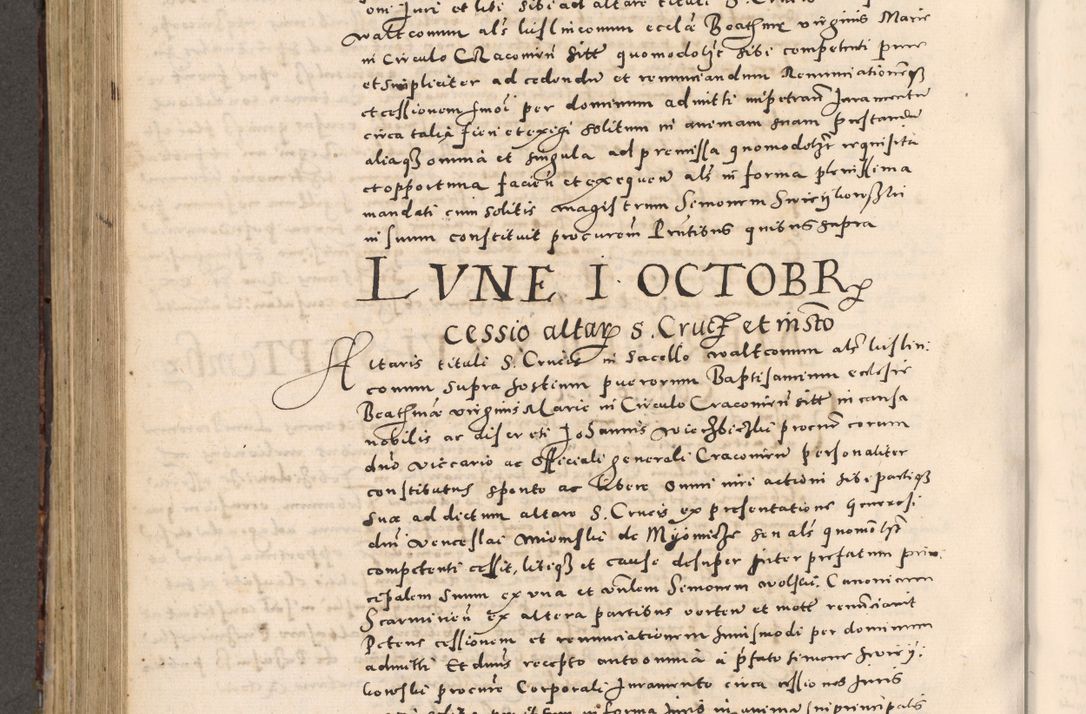 oni Juri et liti sibi ad altare tituli S. Crucis
waltconum als luslinconum eccliæ Beathmæ virginis Marie
in Circulo Cracovien sitt quomodolz sibi competenti pure
et simpliciter ad cedendu et renunciandum Renunciationemqz
et cessionem hmoi per dominum admitti impetran Juramentu
circa talia fieri et exigi solitum in animam suam prestandu
aliaqz omnia et singula ad premissa quomodolz requisita
et opportuna facien et exequen als in forma plenissima
mandati cum solitis magistrum Simonem
in suum constituit procurem Pntibus quibus supra
LVNE I OCTOBR
cessio altar S. Crucz et instto
Altaris tituli S. Crucis in sacello waltconum als luslin:
conum supra hostium puerorum Baptisantium ecclesie
Beathmæ virginis Marie in Circulo Cracovien sitt in causa
nobilis ac discreti Johannis procur coram
dno viccario ac officiali generali Cracovien personaliter
constitutus sponte ac libere omni iuri actioni sibi partiqz
suæ ad dictum altare S. Crucis ex presentatione generosi
dni Venceslai de seu als quomolzt
competenti cessit, litiqz et cause desuper inter prefatum prin:
cipalem suum ex una et Simonem wolski. Canonicum
Scarmirien ex altera partibus verten et mote renunciavit
Petens cessionem et renunciationem huiusmodi per dominum
admitti Et dnus recepto autoomnia a pfato Simone
procure Corporali Juramento circa cessiones Juris
in forma Juris in animam sui principalis